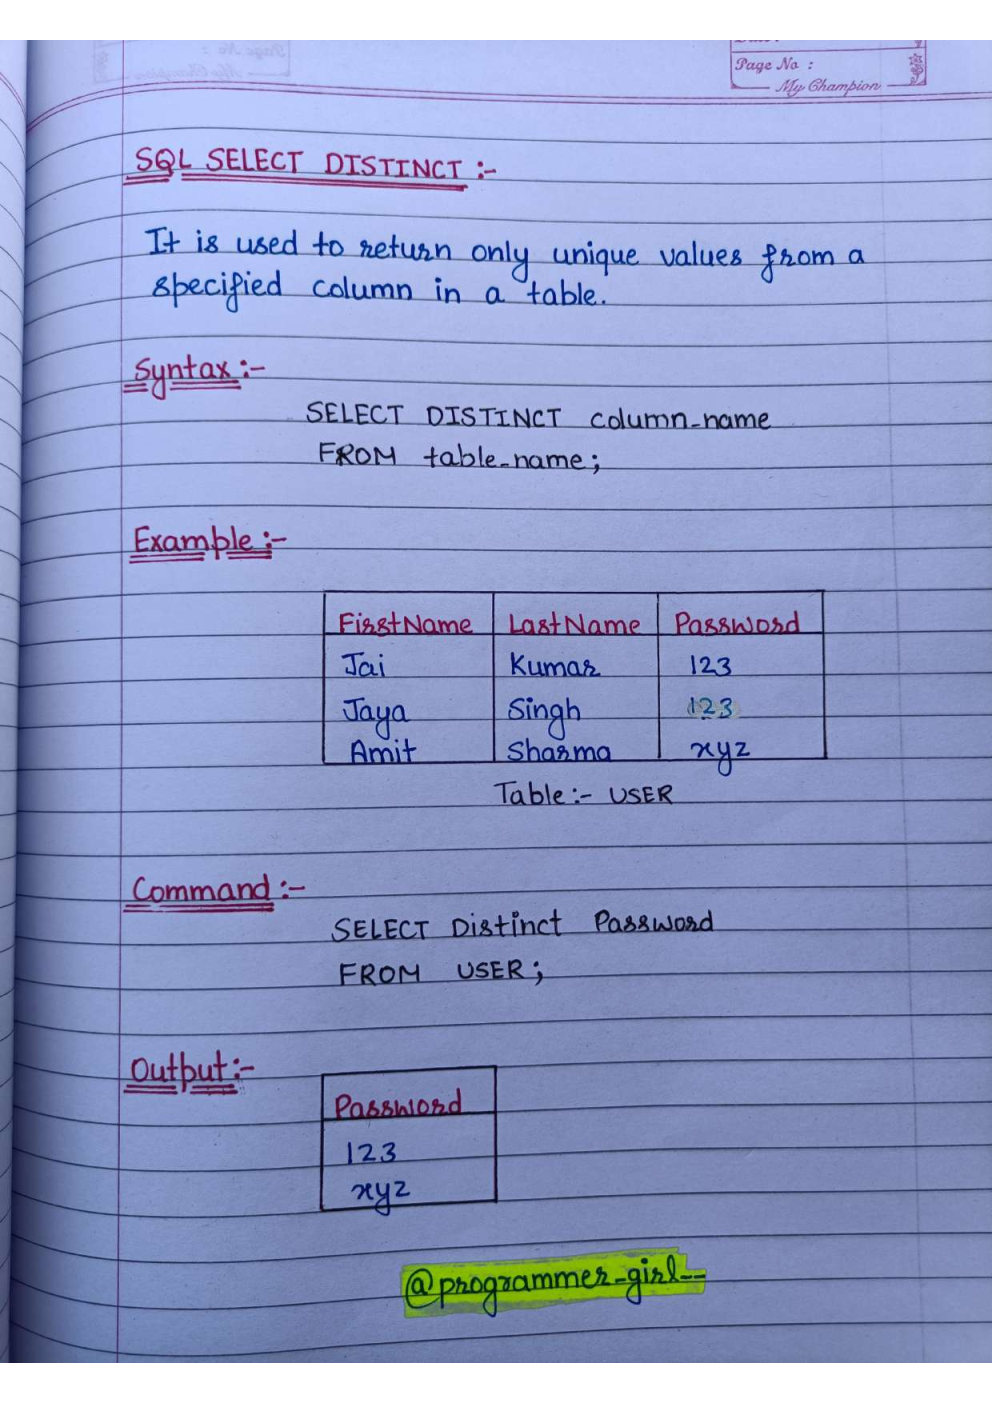 Page No :
My Champion
SQL SELECT DISTINCT :-
It is used to return only unique values from a
specified column in a table.
Syntax :-
SELECT DISTINCT column_name
FROM table_name;
Example :-
FirstName LastName Password
Jai Kumar 123
Jaya Singh 123
Amit Sharma xyz
Table :- USER
Command :-
SELECT Distinct Password
FROM USER;
Output :-
Password
123
xyz
@programmer_girl__